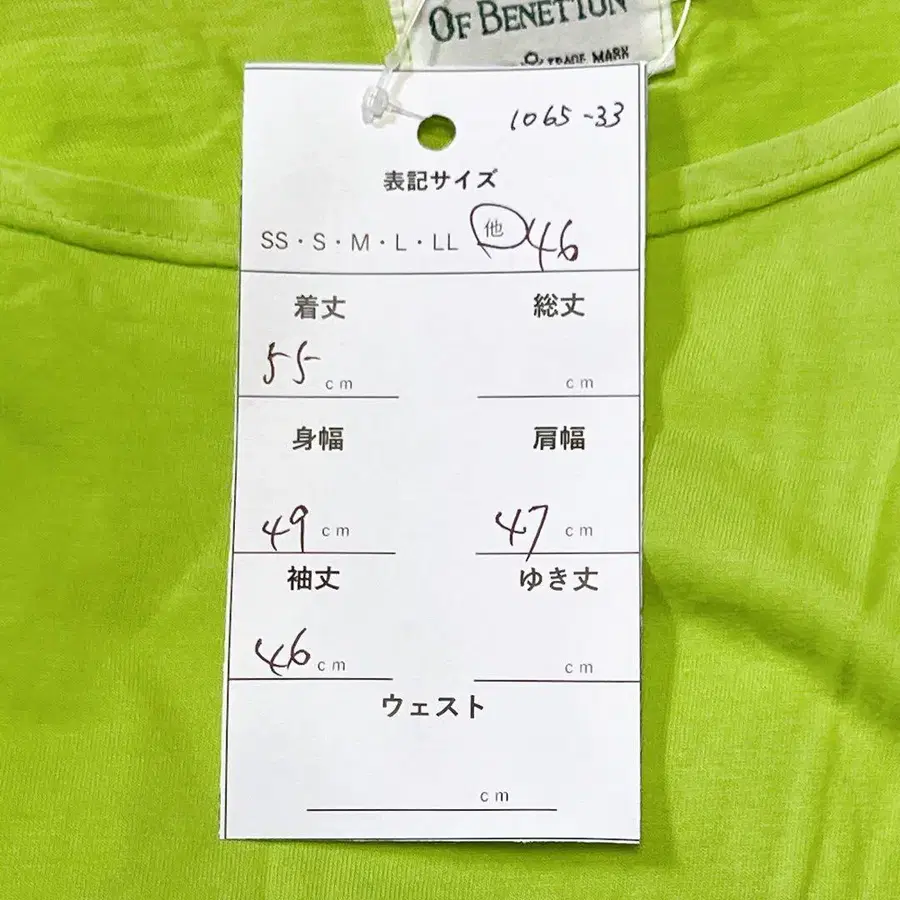 OF BENETTON
TRADE MARK
1065-33
表記サイズ
SS・S・M・L・LL 他 46
着丈 総丈
55 cm cm
身幅 肩幅
49 cm 47 cm
袖丈 ゆき丈
46 cm cm
ウェスト
cm